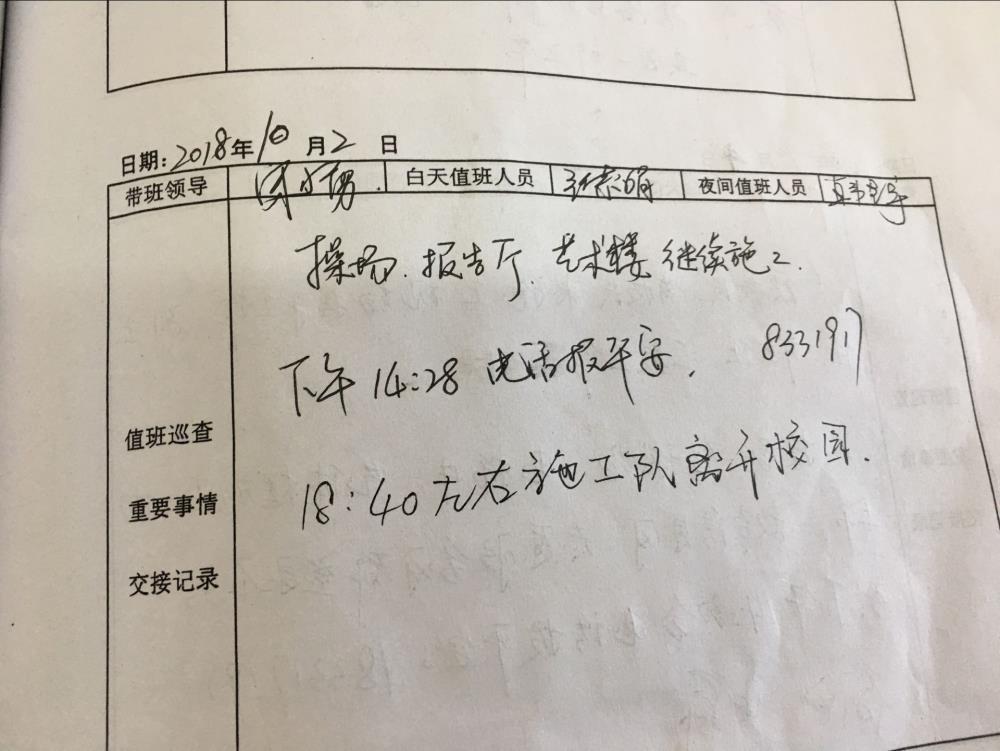 日期:2018年10月2日
带班领导 白天值班人员 夜间值班人员
操场.报告厅.艺术楼 继续施工.
下午14:28电话报平安. 8331917
值班巡查
18:40左右施工队离开校园.
重要事情
交接记录